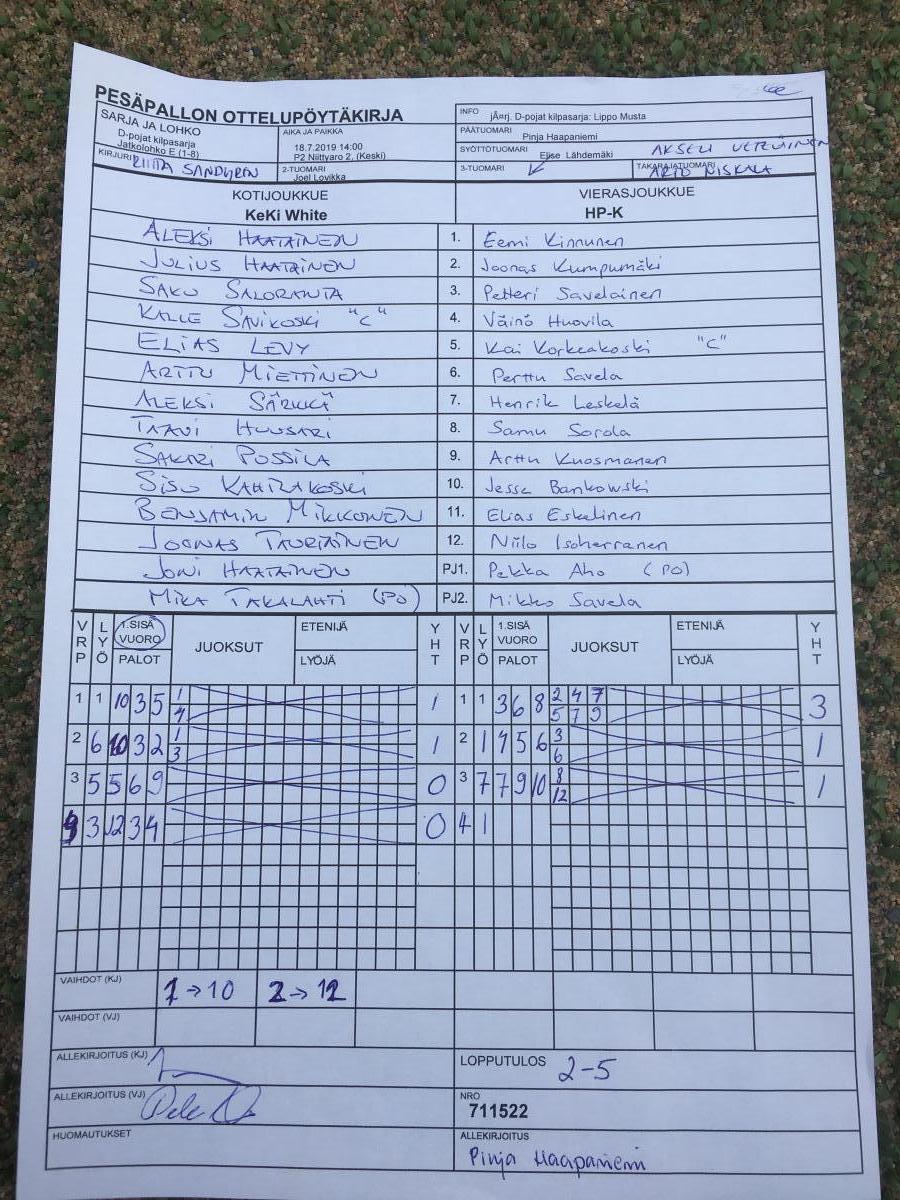 PESÄPALLON OTTELUPÖYTÄKIRJA
SARJA JA LOHKO
D-pojat kilpasarja
Jatkolohko E (1-8)
KIRJURI RIITTA SANDGREN
AIKA JA PAIKKA
18.7.2019 14:00
P2 Niittyaro 2, (Keski)
2-TUOMARI
Joel Lovikka
INFO jÃ¤rj. D-pojat kilpasarja: Lippo Musta
PÄÄTUOMARI
Pinja Haapaniemi
SYÖTTÖTUOMARI
Elise Lähdemäki AKSELI
3-TUOMARI
TAKARAJATUOMARI
ARTO NISKALA
KOTIJOUKKUE VIERASJOUKKUE
KeKi White HP-K
ALEKSI HAATAINEN 1. Eemi Kinnunen
JULIUS HAATAINEN 2. Joonas Kumpumäki
SAKU SALORANTA 3. Petteri Savelainen
KALLE SAVIKOSKI "C" 4. Väinö Huovila
ELIAS LEVY 5. Kai Korkeakoski "C"
ARTTU MIETTINEN 6. Perttu Savela
ALEKSI SÄRKKÄ 7. Henrik Leskelä
TAAVI HUUSARI 8. Samu Sorola
SAKARI POSSILA 9. Arttu Kuosmanen
SISU KAHILAKOSKI 10. Jesse Bankowski
BENJAMIN MIKKONEN 11. Elias Eskelinen
JOONAS TAURIAINEN 12. Niilo Isoherranen
JONI HAATAINEN PJ1. Pekka Aho (PO)
MIKA TAKALAHTI (PO) PJ2. Mikko Savela
VRP LYÖ 1.SISÄ VUORO PALOT JUOKSUT ETENIJÄ LYÖJÄ YHT VRP LYÖ 1.SISÄ VUORO PALOT JUOKSUT ETENIJÄ LYÖJÄ YHT
1 1 10 3 5 1 4 1 1 1 3 6 8 2 4 7 5 7 9 3
2 6 10 3 2 1 3 1 2 1 4 5 6 3 6 1
3 5 5 6 9 0 3 7 7 9 10 8 12 1
3 12 3 4 0 4 1
VAIHDOT (KJ) 1→10 2→12
VAIHDOT (VJ)
ALLEKIRJOITUS (KJ) LOPPUTULOS 2-5
ALLEKIRJOITUS (VJ) NRO
711522
HUOMAUTUKSET ALLEKIRJOITUS
Pinja Haapaniemi